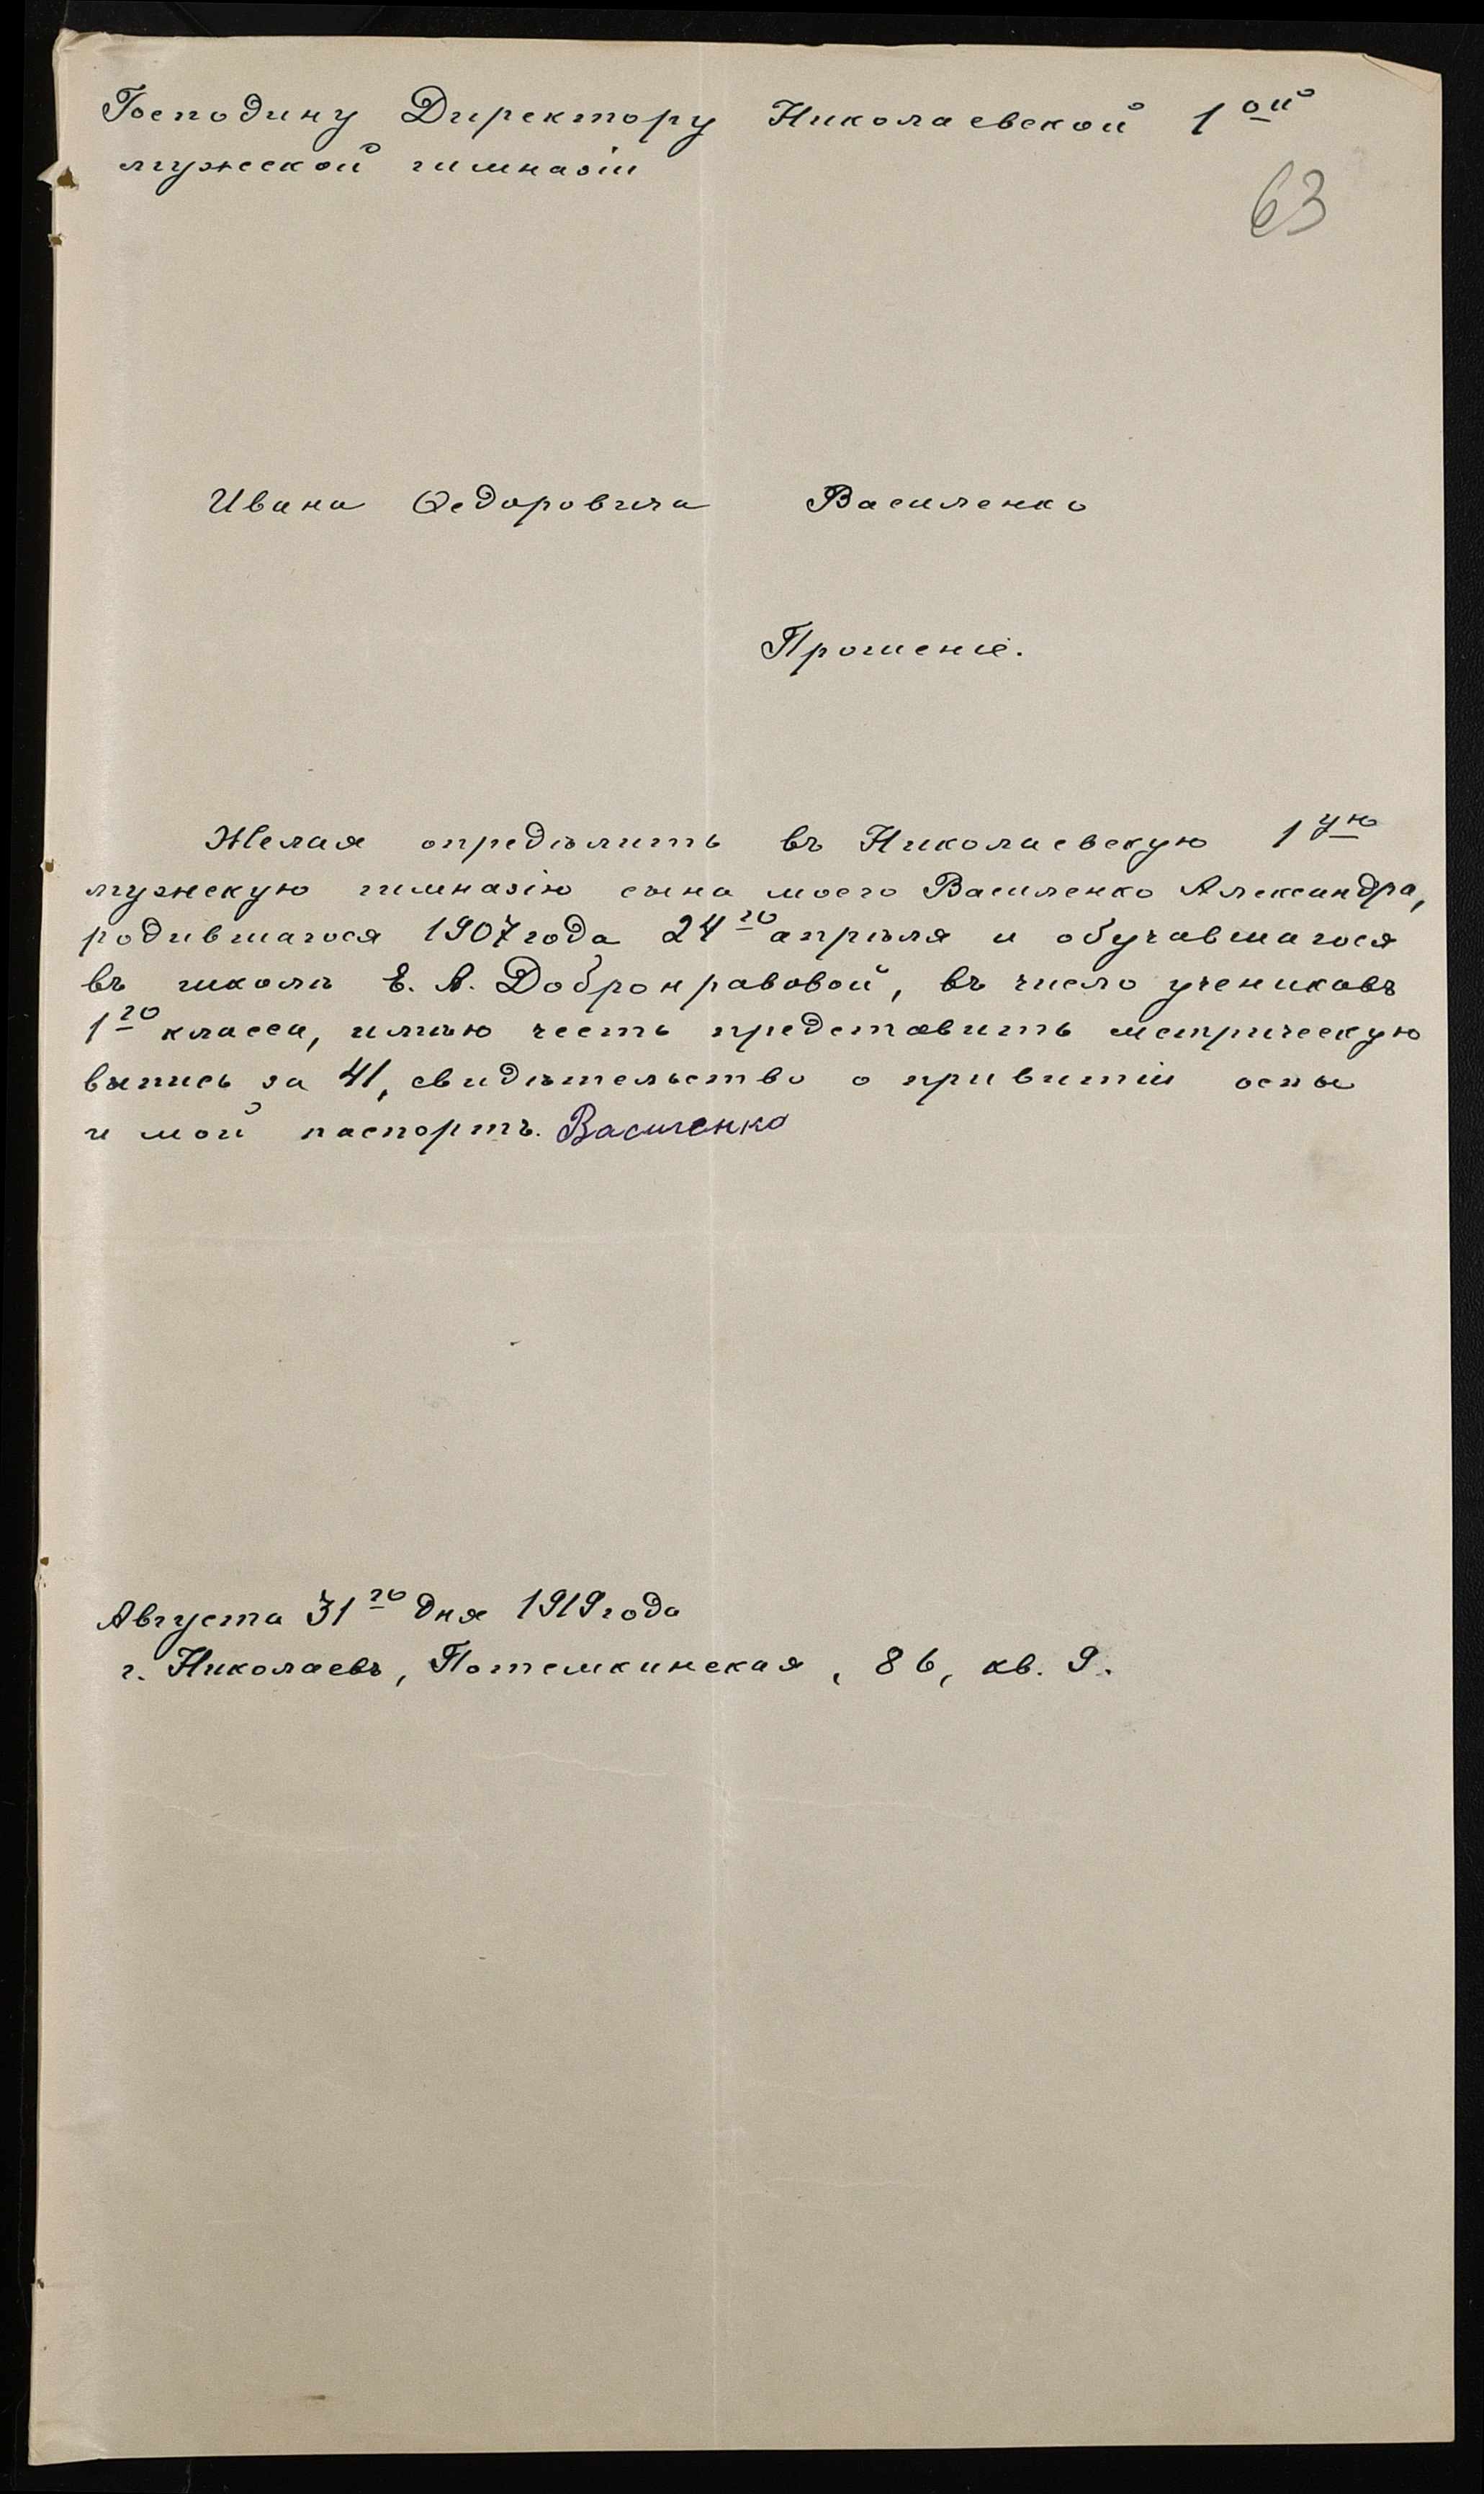 Господину Директору Николаевской 1ой
мужской гимназіи
63
Ивана Ѳедоровича Василенко
Прошеніе.
Желая опредѣлить въ Николаевскую 1ую
мужскую гимназію сына моего Василенко Александра,
родившагося 1907 года 24го апрѣля и обучавшагося
въ школѣ Е. А. Добронравовой, въ число учениковъ
1го класса, имѣю честь представить метрическую
выпись за 41, свидѣтельство о привитіи оспы
и мой паспортъ. Василенко
Августа 31го дня 1919 года
г. Николаевъ, Потемкинская, 86, кв. 9.